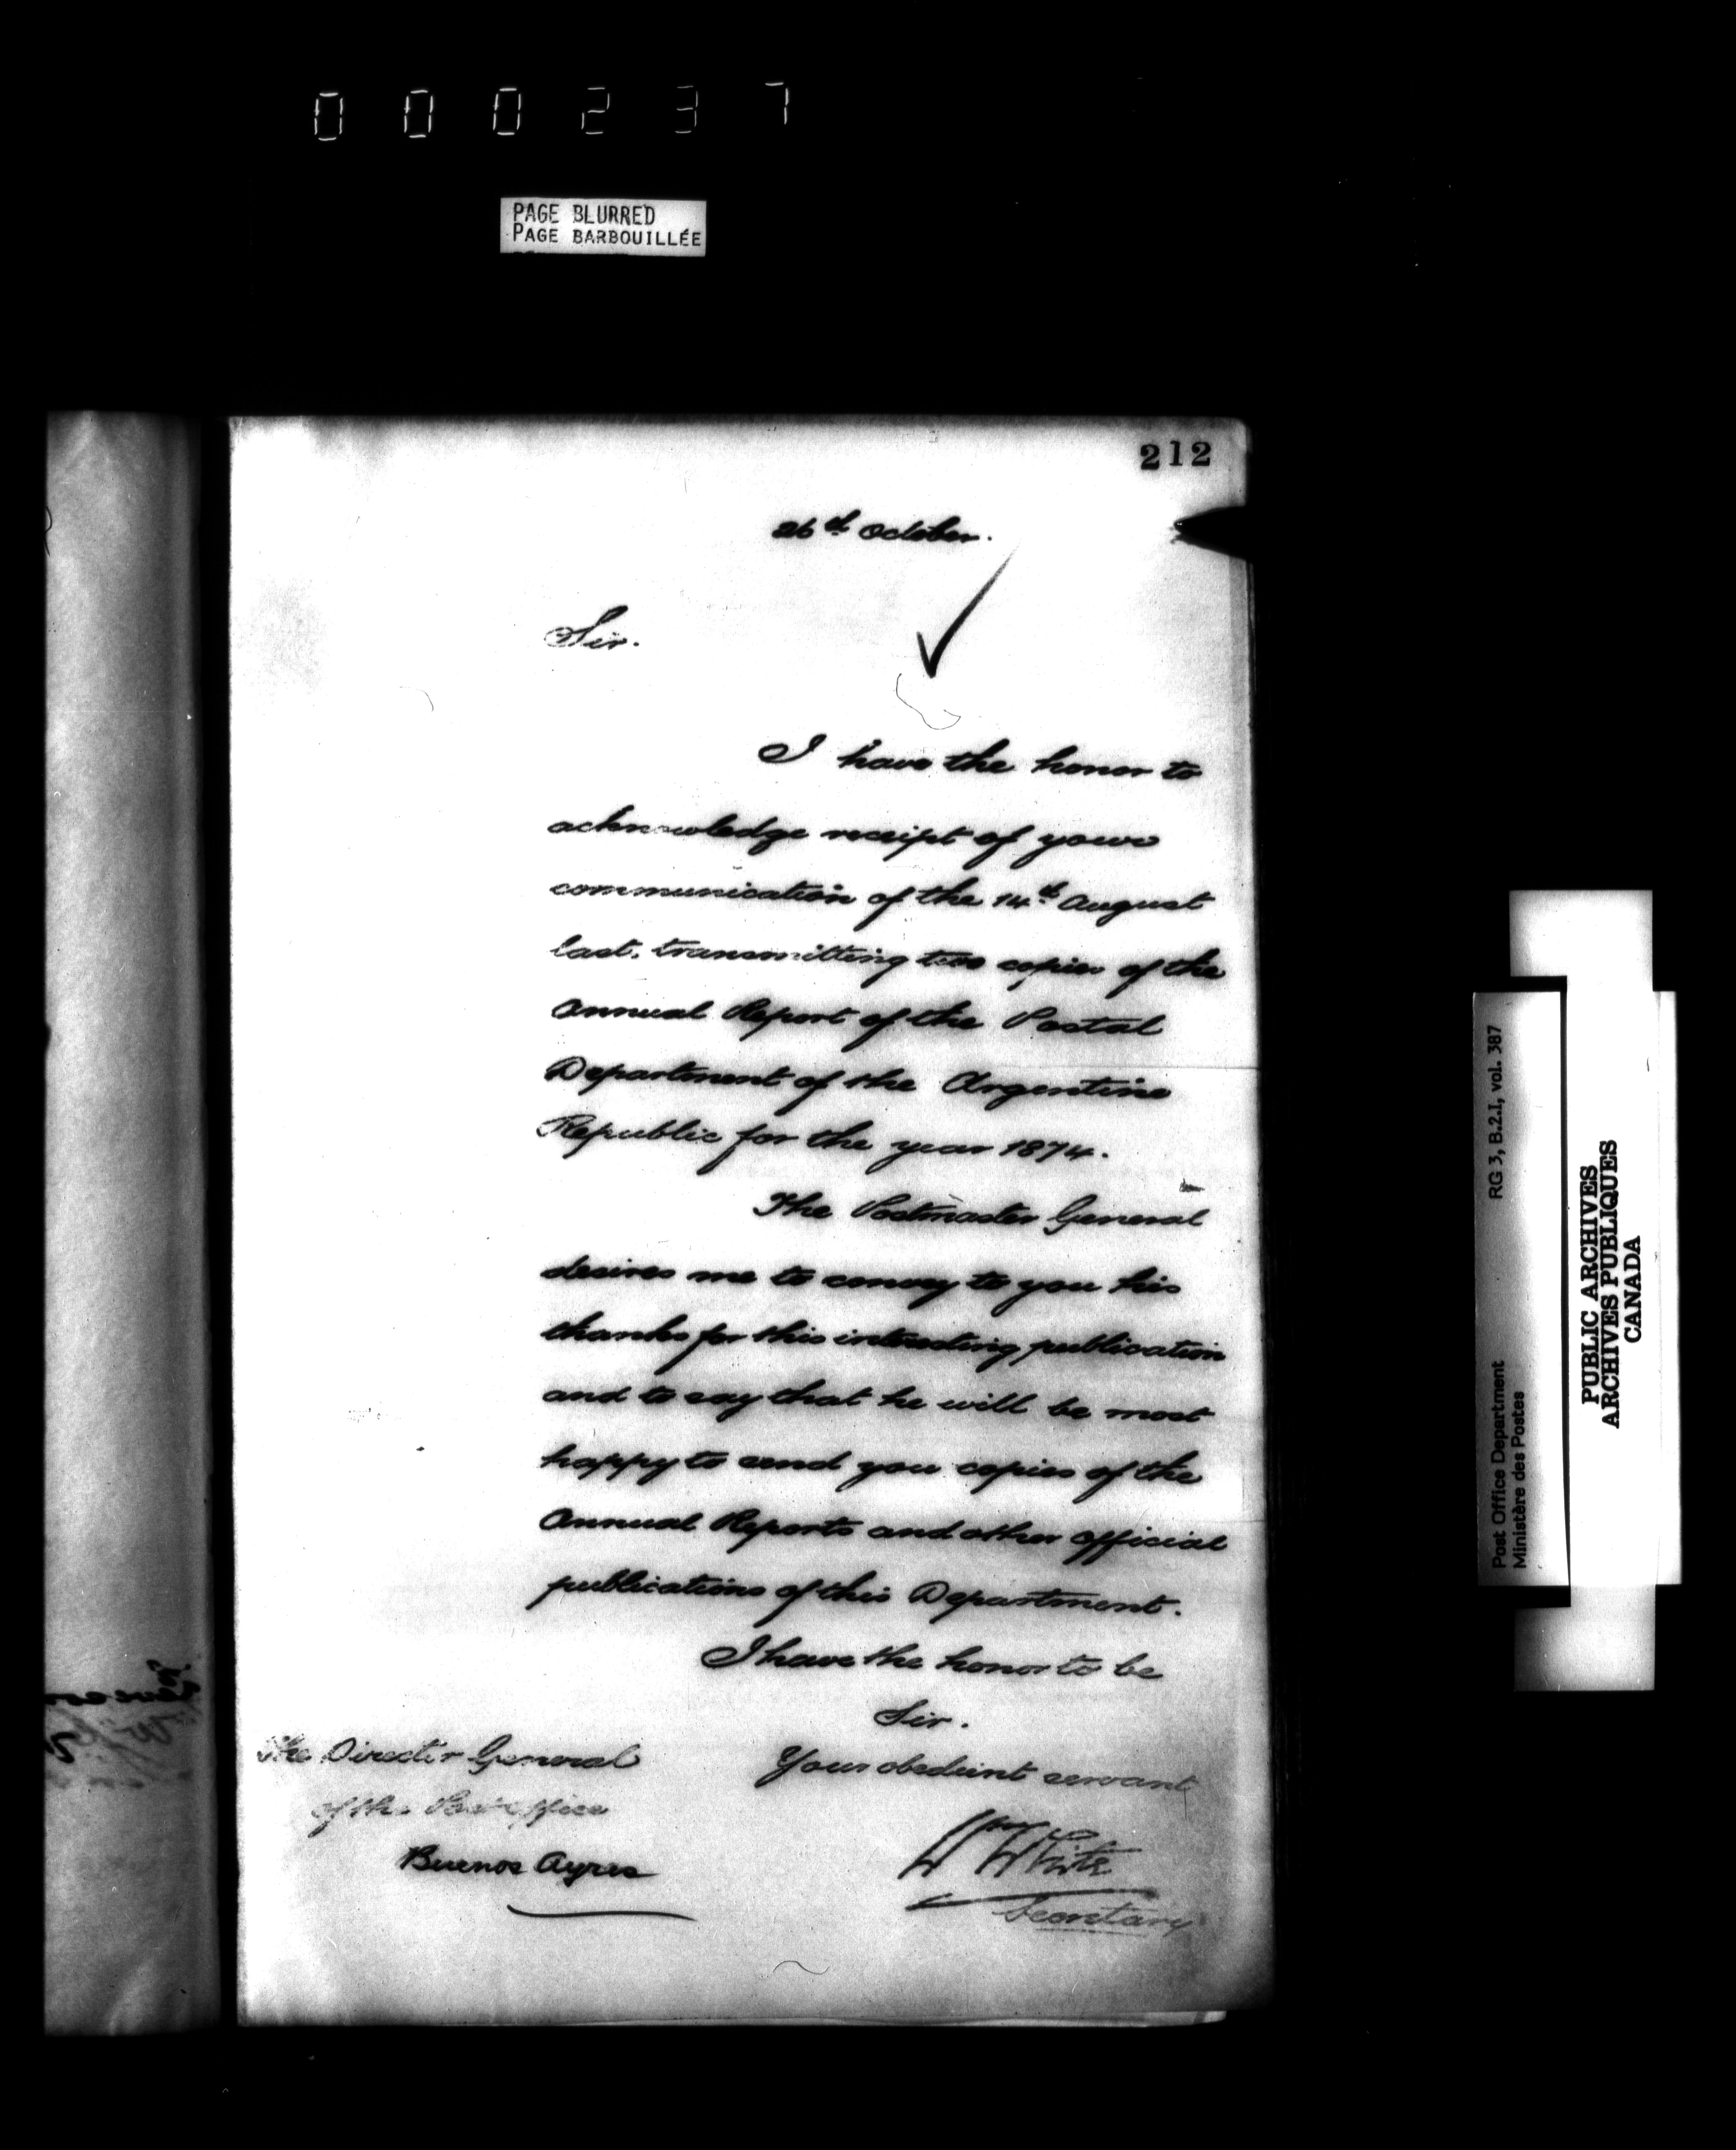 000237
PAGE BLURRED
PAGE BARBOUILLÉE
212
26th October.
Sir.
I have the honor to
acknowledge receipt of your
communication of the 14th August
last, transmitting two copies of the
Annual Report of the Postal
Department of the Argentine
Republic for the year 1874.
The Postmaster General
desires me to convey to you his
thanks for this interesting publication
and to say that he will be most
happy to send you copies of the
Annual Reports and other official
publications of this Department.
I have the honor to be
Sir.
Your obedient servant
Wm White
Secretary
The Director General
of the Post Office
Buenos Ayres
Post Office Department
Ministère des Postes
RG 3, B.2.1, vol. 387
PUBLIC ARCHIVES
ARCHIVES PUBLIQUES
CANADA